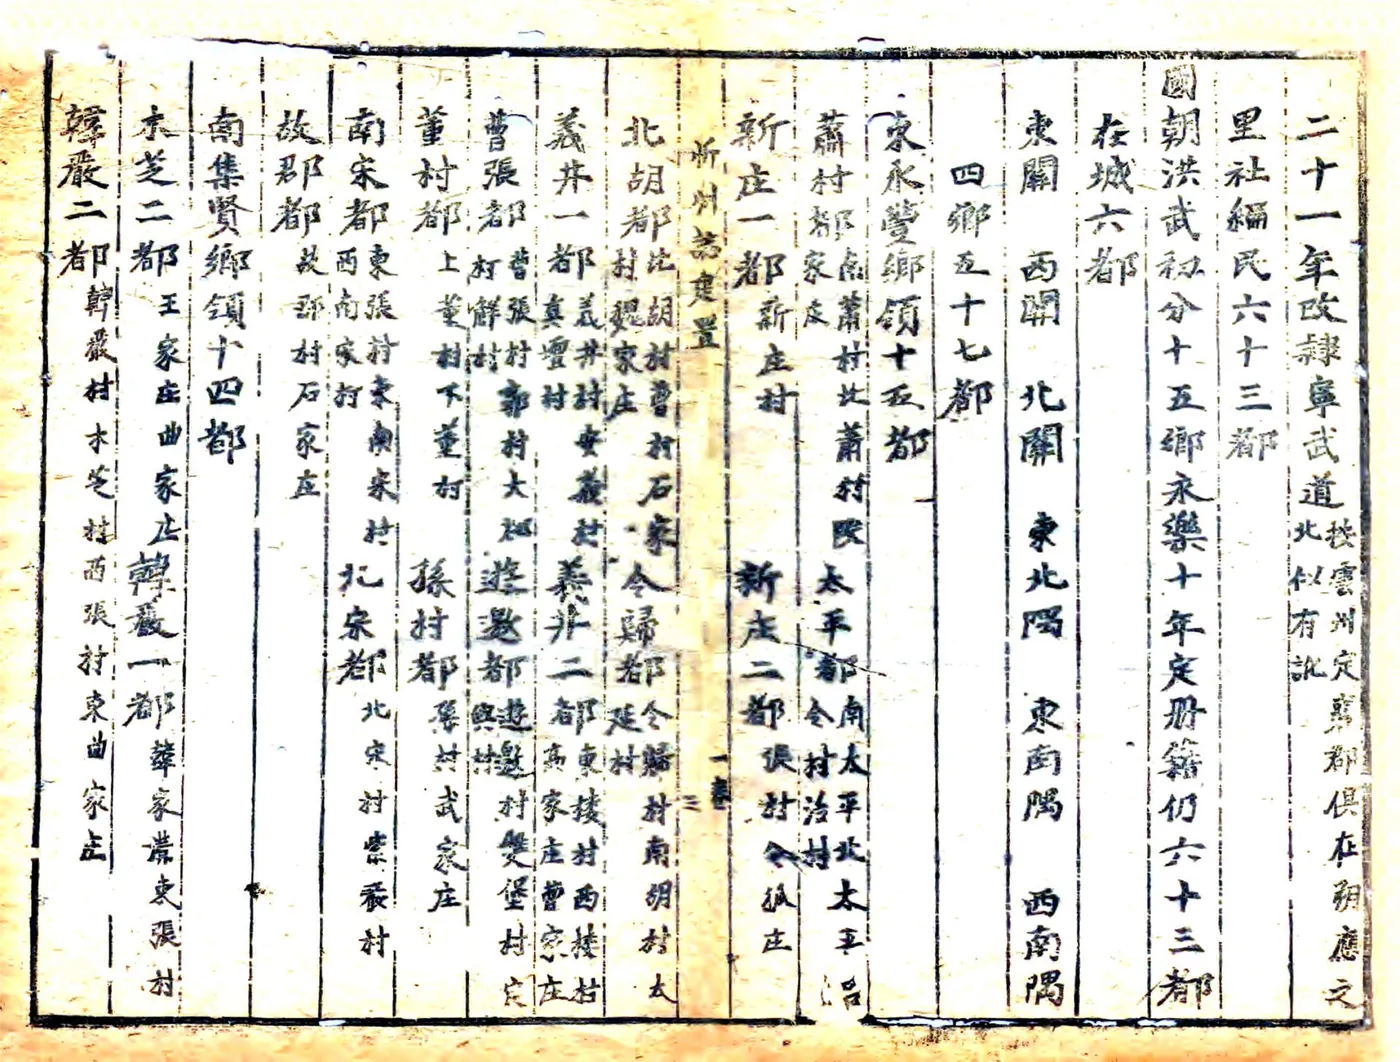 二十一年改隷寧武道按雲州定襄郡俱在朔應之北似有訛
里社編民六十三都
國朝洪武初分十五鄉永樂十年定册籍仍六十三都
在城六都
東關 西關 北關 東北隅 東南隅 西南隅
四鄉五十七都
東永豐鄉領十五都
蕭村都南蕭村北蕭村段家庄 太平都南太平北太平令村治村
新庄一都新庄村 新庄二都張村令狐庄
忻州志建置 一卷 三
北胡都北胡村曹村石家村魏家庄 令歸都令歸村南胡村太延村
義井一都義井村安義村真壇村 義井二都東楼村西楼村高家庄曹家庄
曹張都曹張村郭村大村解村 遊邀都遊邀村雙堡村興村
董村都上董村下董村 孫村都孫村武家庄
南宋都東張村東南宋村西南宋村 北宋都北宋村紫嚴村
故郡都故郡村石家庄
南集賢鄉領十四都
木芝二都王家庄曲家庄 韓嚴一都韓家溝東張村
韓嚴二都韓嚴村木芝村西張村東曲家庄